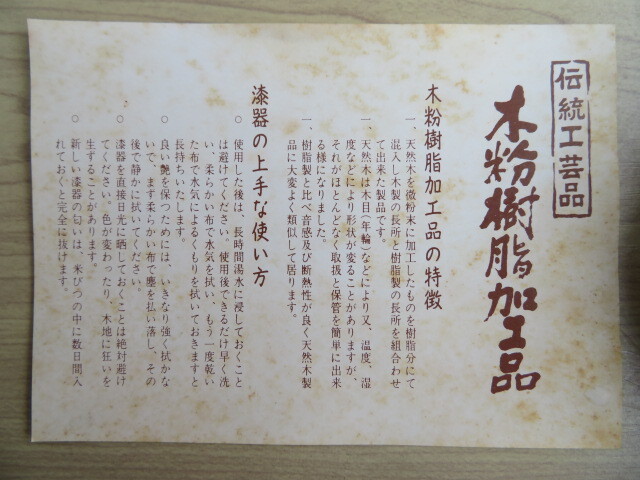 伝統工芸品
木粉樹脂加工品
木粉樹脂加工品の特徴
一、天然木を微粉末に加工したものを樹脂分にて
混入し木製の長所と樹脂製の長所を組合わせ
て出来た製品です。
一、天然木は木目(年輪)などにより又、温度、湿
度などにより形状が変ることがありますが、
それがほとんどなく取扱と保管を簡単に出来
る様になりました。
一、樹脂製と比べ音感及び断熱性が良く天然木製
品に大変よく類似して居ります。
漆器の上手な使い方
○ 使用した後は、長時間湯水に浸しておくこと
は避けてください。使用後できるだけ早く洗
い、柔らかい布で水気を拭い、もう一度乾い
た布で水気によるくもりを拭いておきますと
長持ちいたします。
○ 良い艶を保つためには、いきなり強く拭かな
いで、まず柔らかい布で塵を払い落し、その
後で静かに拭いてください。
○ 漆器を直接日光に晒しておくことは絶対避け
てください。色が変わったり、木地に狂いを
生ずることがあります。
○ 新しい漆器の匂いは、米びつの中に数日間入
れておくと完全に抜けます。